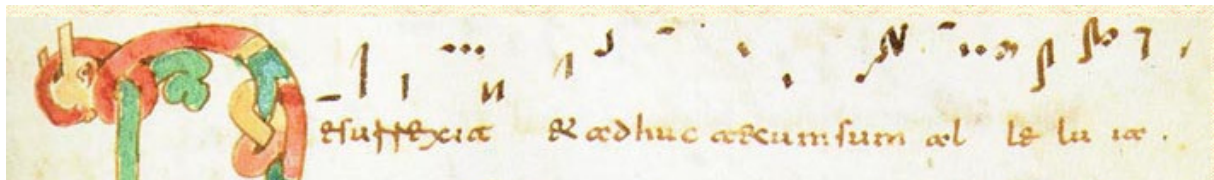 Resurrexit & adhuc tecum sum al le lu ia .